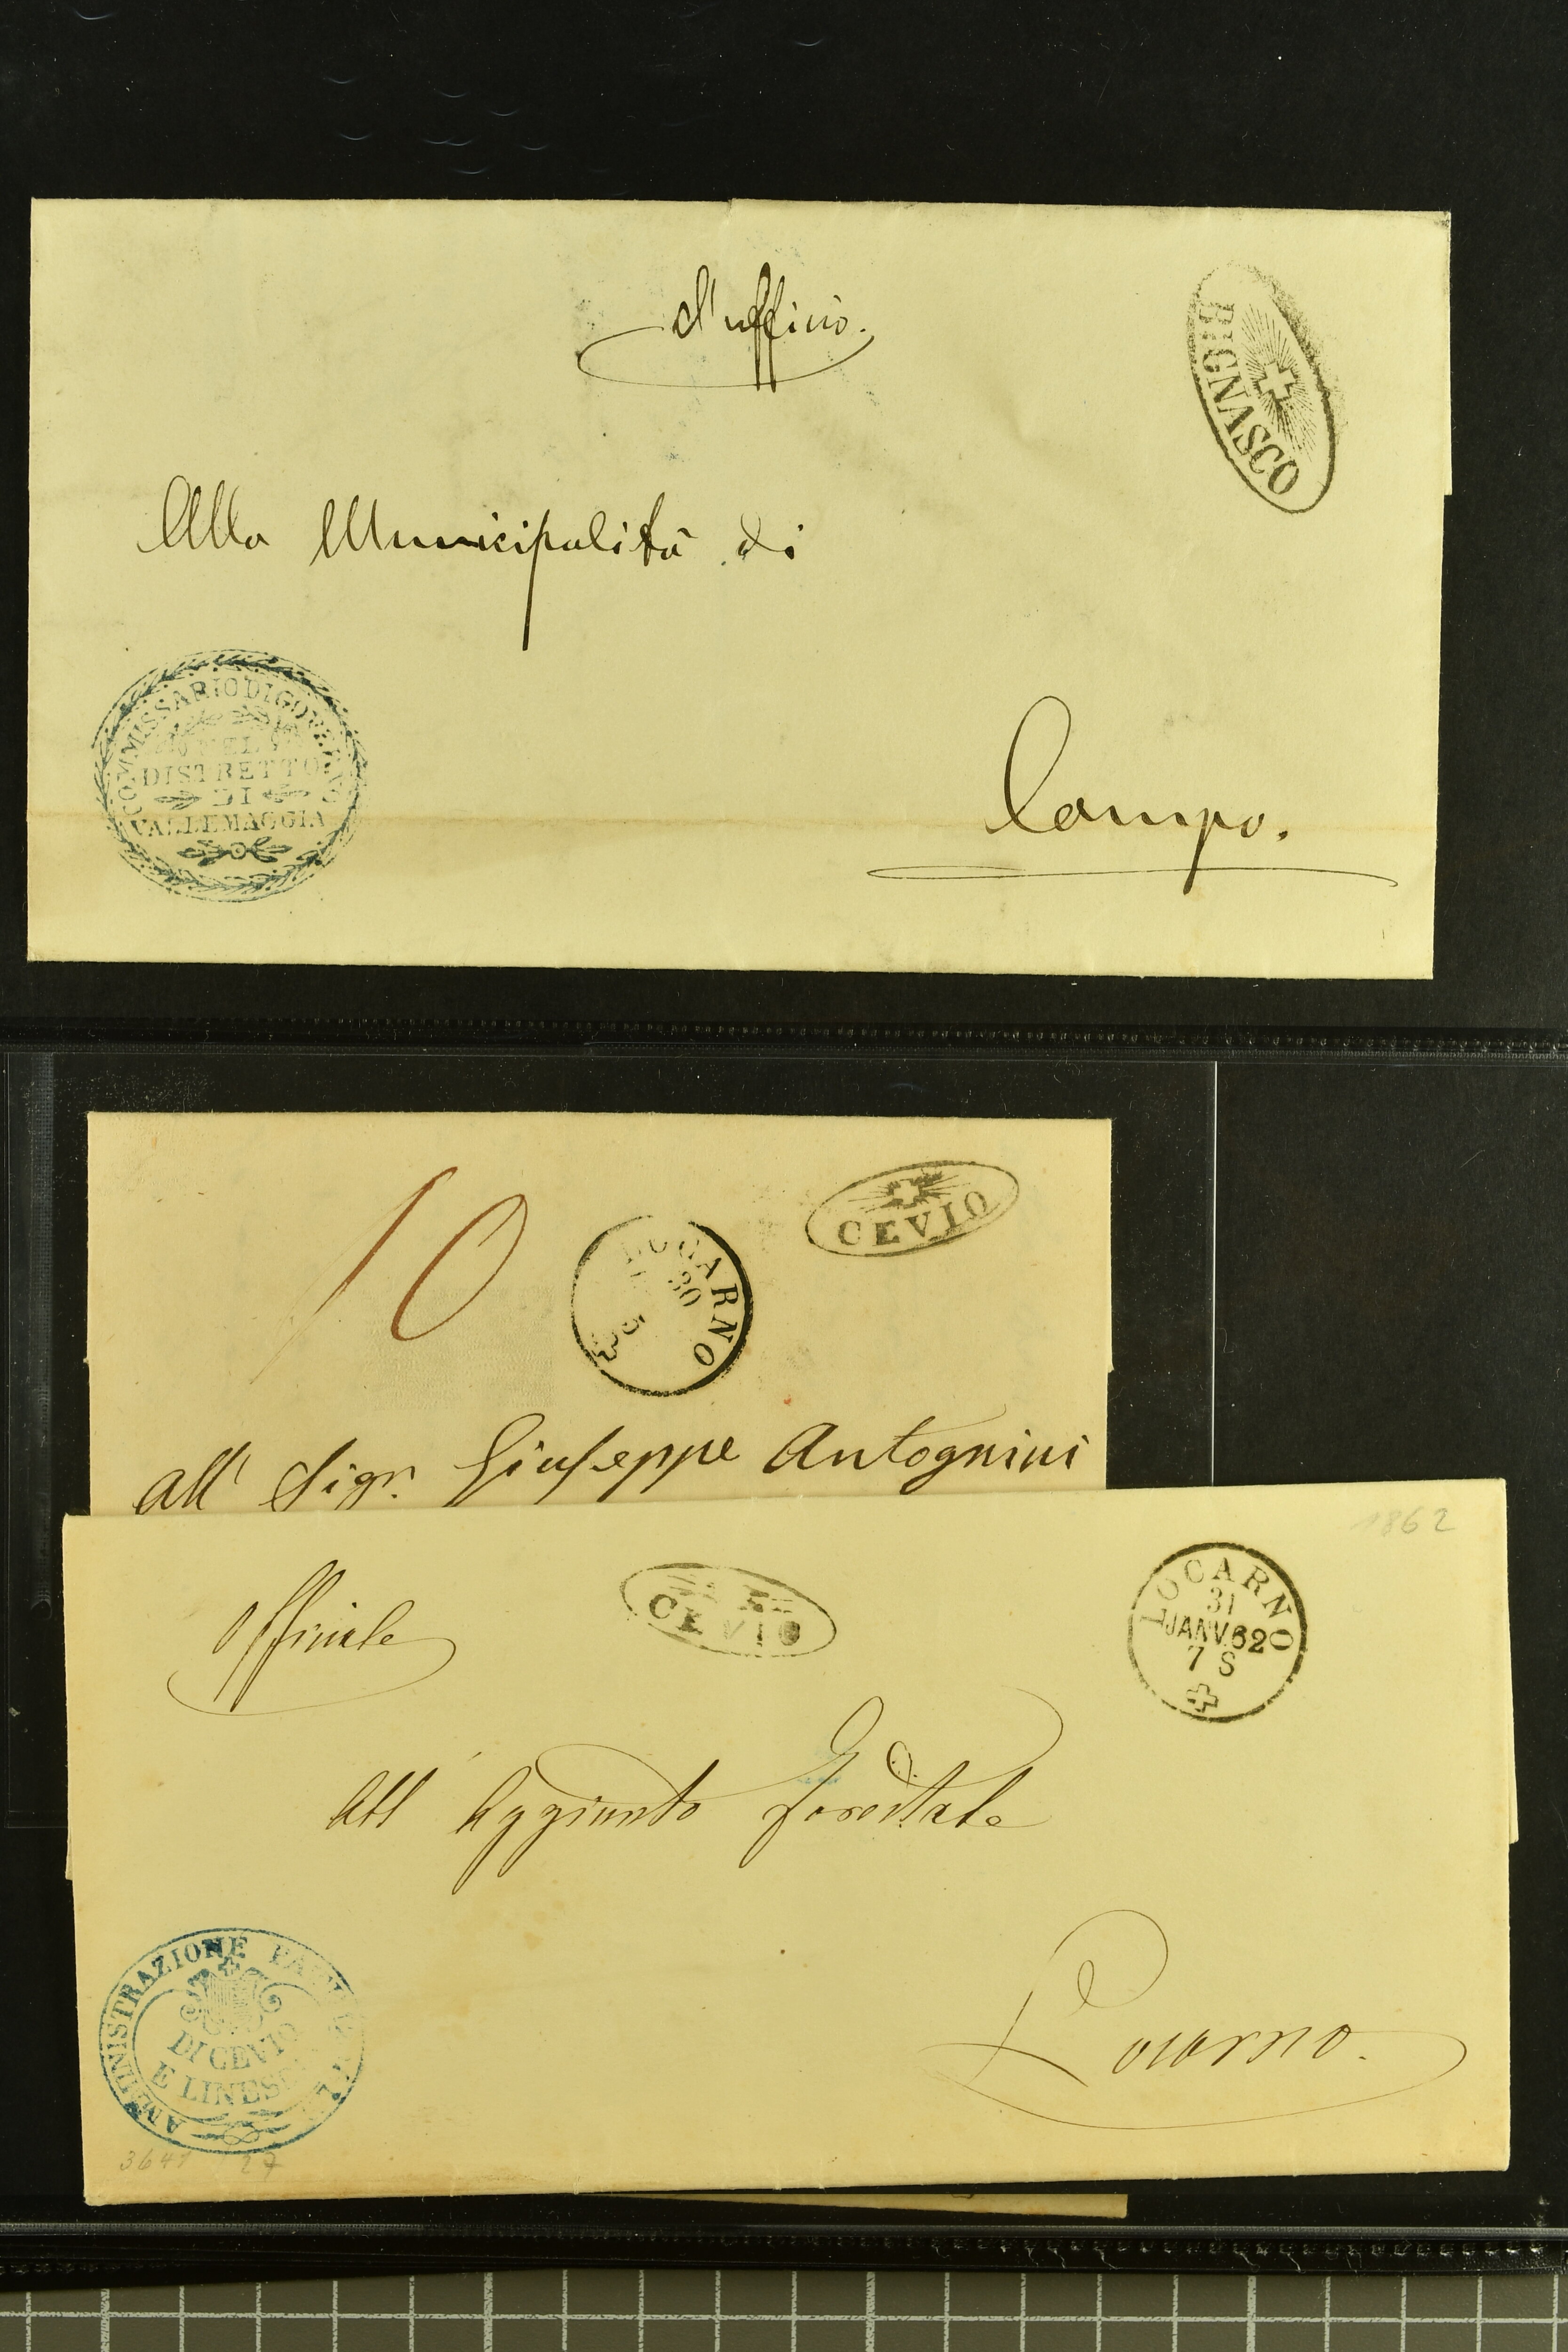 d'ufficio.
BIGNASCO
Alla Municipalità di
COMMISSARIO DI GOVERNO
NEL
DISTRETTO
DI
VALLEMAGGIA
Campo.
10
LOCARNO
30
CEVIO
all' Sigr. Giuseppe Antognini
1862
Officiale
CEVIO
LOCARNO
31
JANV.62
7 S
All' Aggiunto forestale
AMMINISTRAZIONE
DI CEVIO
E LINESC
Locarno.
3641 27